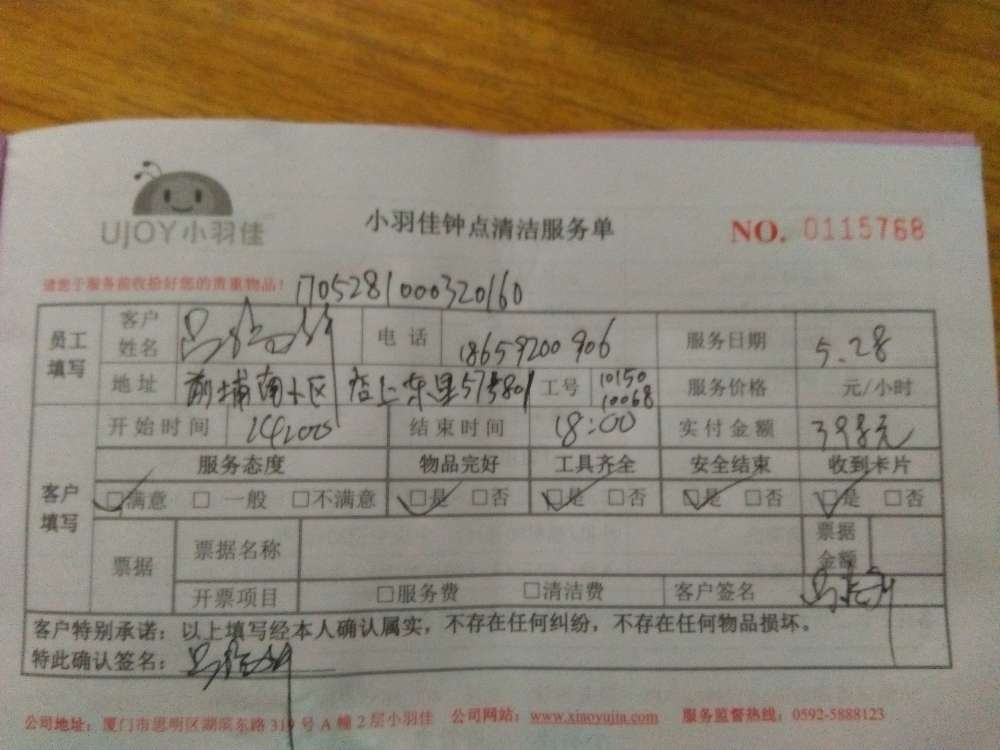 UJOY小羽佳
小羽佳钟点清洁服务单
NO. 0115768
请您于服务前收拾好您的贵重物品! 1705281000320160
员工填写 客户姓名 电话 18659200906 服务日期 5.28
地址 前埔南小区 店上东里57#801 工号 10150 10068 服务价格 元/小时
客户填写 开始时间 14:00 结束时间 18:00 实付金额 398元
服务态度 物品完好 工具齐全 安全结束 收到卡片
□满意 □一般 □不满意 □是 □否 □是 □否 □是 □否 □是 □否
票据 票据名称 票据金额
开票项目 □服务费 □清洁费 客户签名
客户特别承诺：以上填写经本人确认属实，不存在任何纠纷，不存在任何物品损坏。
特此确认签名：
公司地址：厦门市思明区湖滨东路319号A幢2层小羽佳 公司网站：www.xiaoyujia.com 服务监督热线：0592-5888123